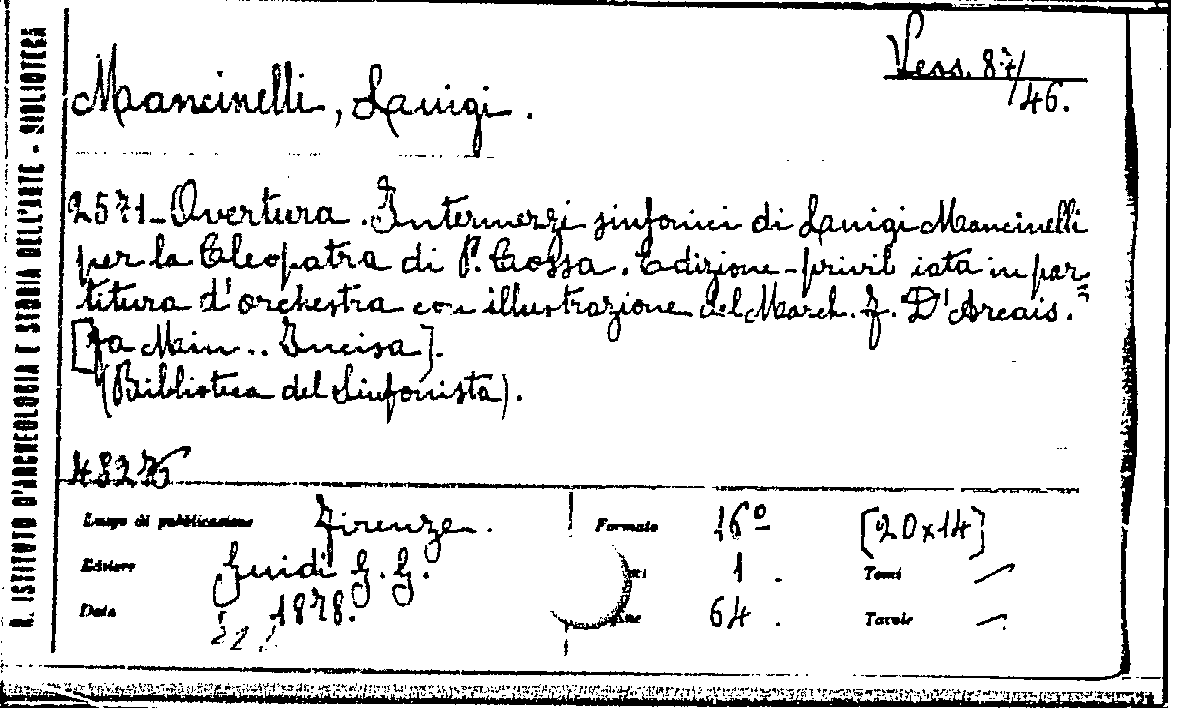 R. ISTITUTO D'ARCHEOLOGIA E STORIA DELL'ARTE - BIBLIOTECA
Vess. 87/46.
Mancinelli, Luigi.
2571 - Overtura. Intermezzi sinfonici di Luigi Mancinelli
per la Cleopatra di P. Cossa. Edizione privil iata in par=
titura d'orchestra con illustrazione del March. F. D'Arcais.
[fa Min.. Incisa].
(Biblioteca del Sinfonista).
48276
Luogo di pubblicazione Firenze. Formato 16º [20x14]
Editore Guidi G. G. 1. Tomi —
Data 1878. 64. Tavole —